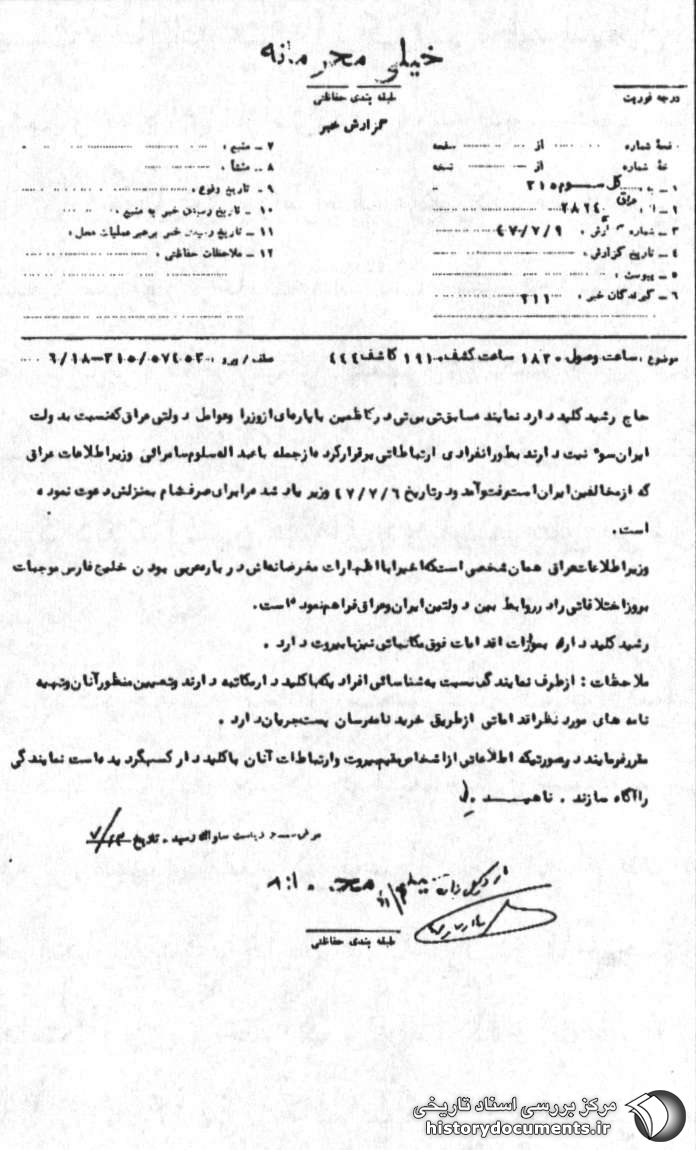 خیلی محرمانه
طبقه بندی حفاظتی
درجه فوریت
گزارش خبر
شماره از صفحه
شماره از نسخه
۱ ـ به کل سوم ۳۱۵
۲۸۲۴۰ عراق
۳ ـ شماره گزارش ، ۴۷/۷/۹
۴ ـ تاریخ گزارش ،
۵ ـ پیوست ،
۶ ـ گیرندگان خبر ، ۲۱۱
۷ ـ منبع ،
۸ ـ منشأ ،
۹ ـ تاریخ وقوع ،
۱۰ ـ تاریخ رسیدن خبر به منبع ،
۱۱ ـ تاریخ رسیدن خبر برهبر عملیات محل ،
۱۲ ـ ملاحظات حفاظتی ،
موضوع ، ساعت وصول ۱۸۳۰ ساعت کشف ۱۹۱۰ کاشف ۴۴۴
حاج رشید کلید دارد نماینده سابق تی بی تی در کاظمین با پاره‌ای از وزرا وعوامل دولتی عراق که نسبت بدولت
ایران سوء نیت دارند بطور انفرادی ارتباطاتی برقرار کرده از جمله با عبد اله سلوم سامرائی وزیر اطلاعات عراق
که از مخالفین ایران است رفت وآمد ودر تاریخ ۴۷/۷/۶ وزیر یاد شده را برای صرف شام بمنزلش دعوت نموده
است.
وزیر اطلاعات عراق همان شخصی است که اخیرا با اظهارات مغرضانه‌اش درباره عربی بودن خلیج فارس موجبات
بروز اختلافاتی را در روابط بین دولتین ایران وعراق فراهم نموده است.
رشید کلید دار به موازات اقدامات فوق مکاتباتی نیز با بیروت دارد .
ملاحظات : از طرف نمایندگی نسبت به شناسائی افراد یکه با کلید دار مکاتبه دارند وتعیین منظور آنان وتهیه
نامه های مورد نظر اقداماتی از طریق خرید نامه رسان پست جریان دارد .
مقرر فرمایند در صورتیکه اطلاعاتی از اشخاص مقیم بیروت وارتباطات آنان با کلید دار کسب گردیده است نمایندگی
را آگاه سازند . ناهید
ریاست ساواک رسید . تاریخ ۷/۱۳
طبقه بندی حفاظتی
مرکز بررسی اسناد تاریخی
historydocuments.ir